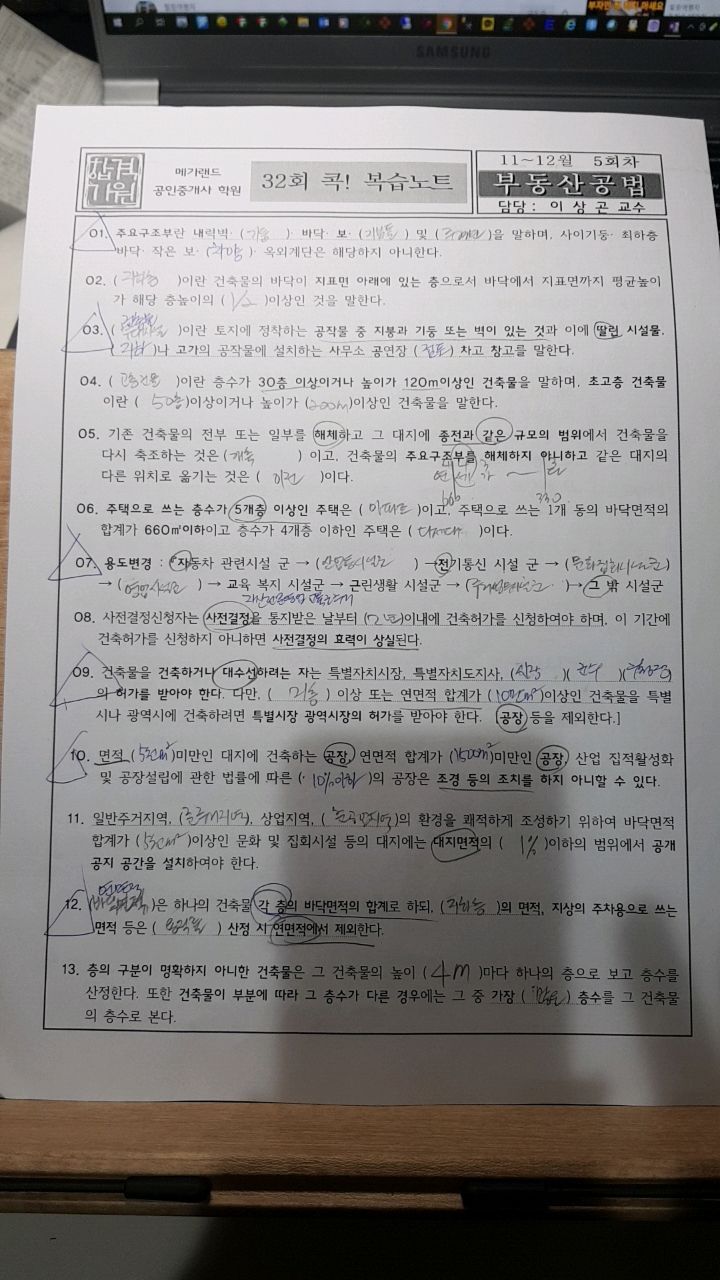 SAMSUNG
합격
기원
메가랜드
공인중개사 학원
32회 콕! 복습노트
11~12월 5회차
부동산공법
담당: 이 상 곤 교수
01. 주요구조부란 내력벽·(기둥)· 바닥· 보·(지붕틀) 및 (주계단)을 말하며, 사이기둥· 최하층
바닥· 작은 보·(차양)· 옥외계단은 해당하지 아니한다.
02. (지하층)이란 건축물의 바닥이 지표면 아래에 있는 층으로서 바닥에서 지표면까지 평균높이
가 해당 층높이의 (1/2)이상인 것을 말한다.
03. (건축물)이란 토지에 정착하는 공작물 중 지붕과 기둥 또는 벽이 있는 것과 이에 딸린 시설물,
(지하)나 고가의 공작물에 설치하는 사무소 공연장 (점포) 차고 창고를 말한다.
04. (고층건물)이란 층수가 30층 이상이거나 높이가 120m이상인 건축물을 말하며, 초고층 건축물
이란 (50층)이상이거나 높이가 (200m)이상인 건축물을 말한다.
05. 기존 건축물의 전부 또는 일부를 해체하고 그 대지에 종전과 같은 규모의 범위에서 건축물을
다시 축조하는 것은 (개축) 이고, 건축물의 주요구조부를 해체하지 아니하고 같은 대지의
다른 위치로 옮기는 것은 (이전)이다.
660 330
06. 주택으로 쓰는 층수가 5개층 이상인 주택은 (아파트)이고, 주택으로 쓰는 1개 동의 바닥면적의
합계가 660㎡이하이고 층수가 4개층 이하인 주택은 (다세대)이다.
07. 용도변경 : 자동차 관련시설 군 → (산업등시설군) →전기통신 시설 군 → (문화집회시설군)
→ (영업시설군) → 교육 복지 시설군 → 근린생활 시설군 → (주거업무시설군)→ 그 밖 시설군
08. 사전결정신청자는 사전결정을 통지받은 날부터 (2년)이내에 건축허가를 신청하여야 하며, 이 기간에
건축허가를 신청하지 아니하면 사전결정의 효력이 상실된다.
09. 건축물을 건축하거나 대수선하려는 자는 특별자치시장, 특별자치도지사, (시장)(군수)(구청장)
의 허가를 받아야 한다. 다만, (21층) 이상 또는 연면적 합계가 (10만㎡)이상인 건축물을 특별
시나 광역시에 건축하려면 특별시장 광역시장의 허가를 받아야 한다. [공장 등을 제외한다.]
10. 면적 (5천㎡)미만인 대지에 건축하는 공장, 연면적 합계가 (1500㎡)미만인 공장, 산업 집적활성화
및 공장설립에 관한 법률에 따른 ( )의 공장은 조경 등의 조치를 하지 아니할 수 있다.
11. 일반주거지역, (준주거지역), 상업지역, (준공업지역)의 환경을 쾌적하게 조성하기 위하여 바닥면적
합계가 (5천㎡)이상인 문화 및 집회시설 등의 대지에는 대지면적의 ( )이하의 범위에서 공개
공지 공간을 설치하여야 한다.
연면적
12. (바닥면적)은 하나의 건축물 각 층의 바닥면적의 합계로 하되, (지하층)의 면적, 지상의 주차용으로 쓰는
면적 등은 (용적률) 산정 시 연면적에서 제외한다.
13. 층의 구분이 명확하지 아니한 건축물은 그 건축물의 높이 (4m)마다 하나의 층으로 보고 층수를
산정한다. 또한 건축물이 부분에 따라 그 층수가 다른 경우에는 그 중 가장 (많은) 층수를 그 건축물
의 층수로 본다.